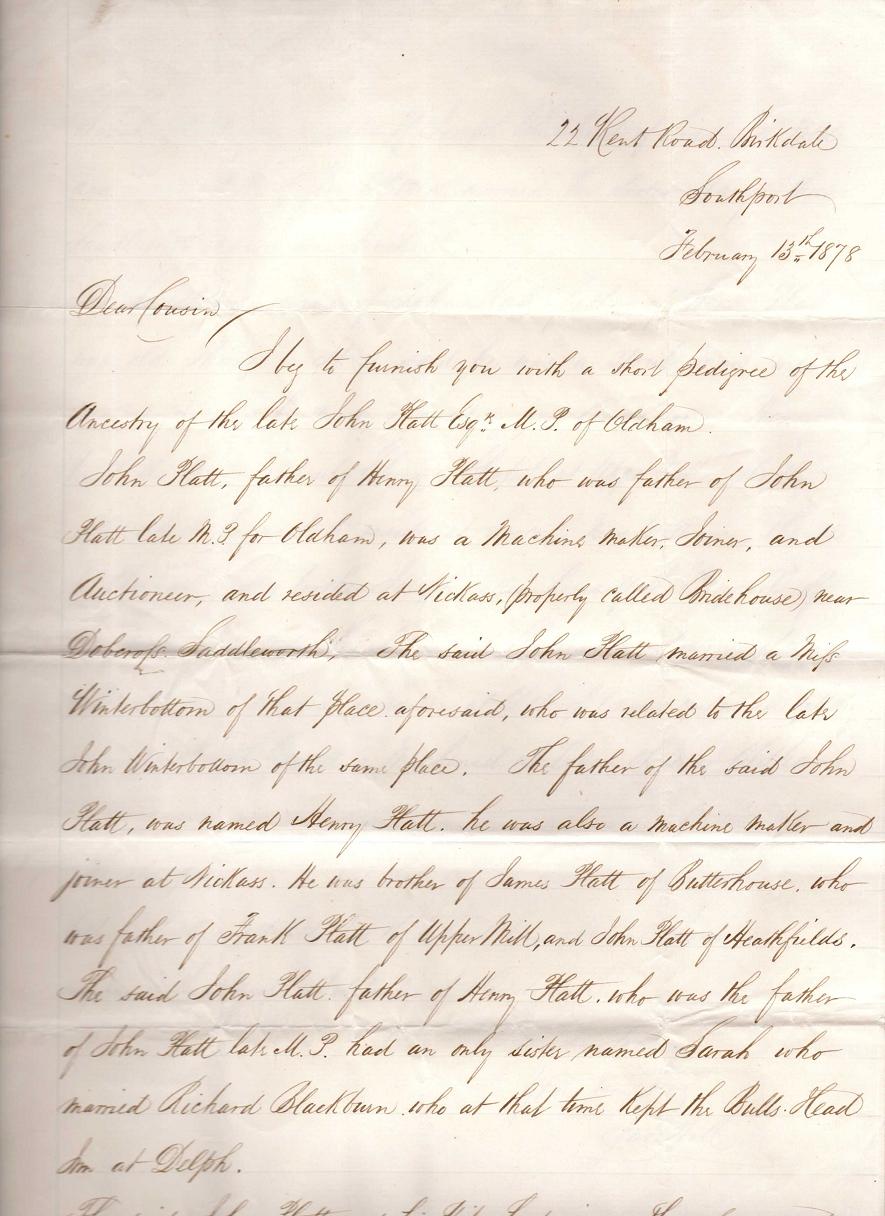 22 Kent Road. Birkdale
Southport
February 13th 1878
Dear Cousin
I beg to furnish you with a short pedigree of the
Ancestry of the late John Platt Esqr. M. P. of Oldham.
John Platt, father of Henry Platt, who was father of John
Platt late M. P for Oldham, was a Machine maker, Joiner, and
Auctioneer, and resided at Nickass, (properly called Bridehouse) near
Dobcross Saddleworth, The said John Platt married a Miss
Winterbottom of that place aforesaid, who was related to the late
John Winterbottom of the same place. The father of the said John
Platt, was named Henry Platt. he was also a machine maker and
joiner at Nickass. He was brother of James Platt of Butterhouse. who
was father of Frank Platt of Upper Mill, and John Platt of Heathfields.
The said John Platt. father of Henry Platt. who was the father
of John Platt late M. P. had an only sister named Sarah who
married Richard Blackburn who at that time Kept the Bulls. Head
Inn at Delph.